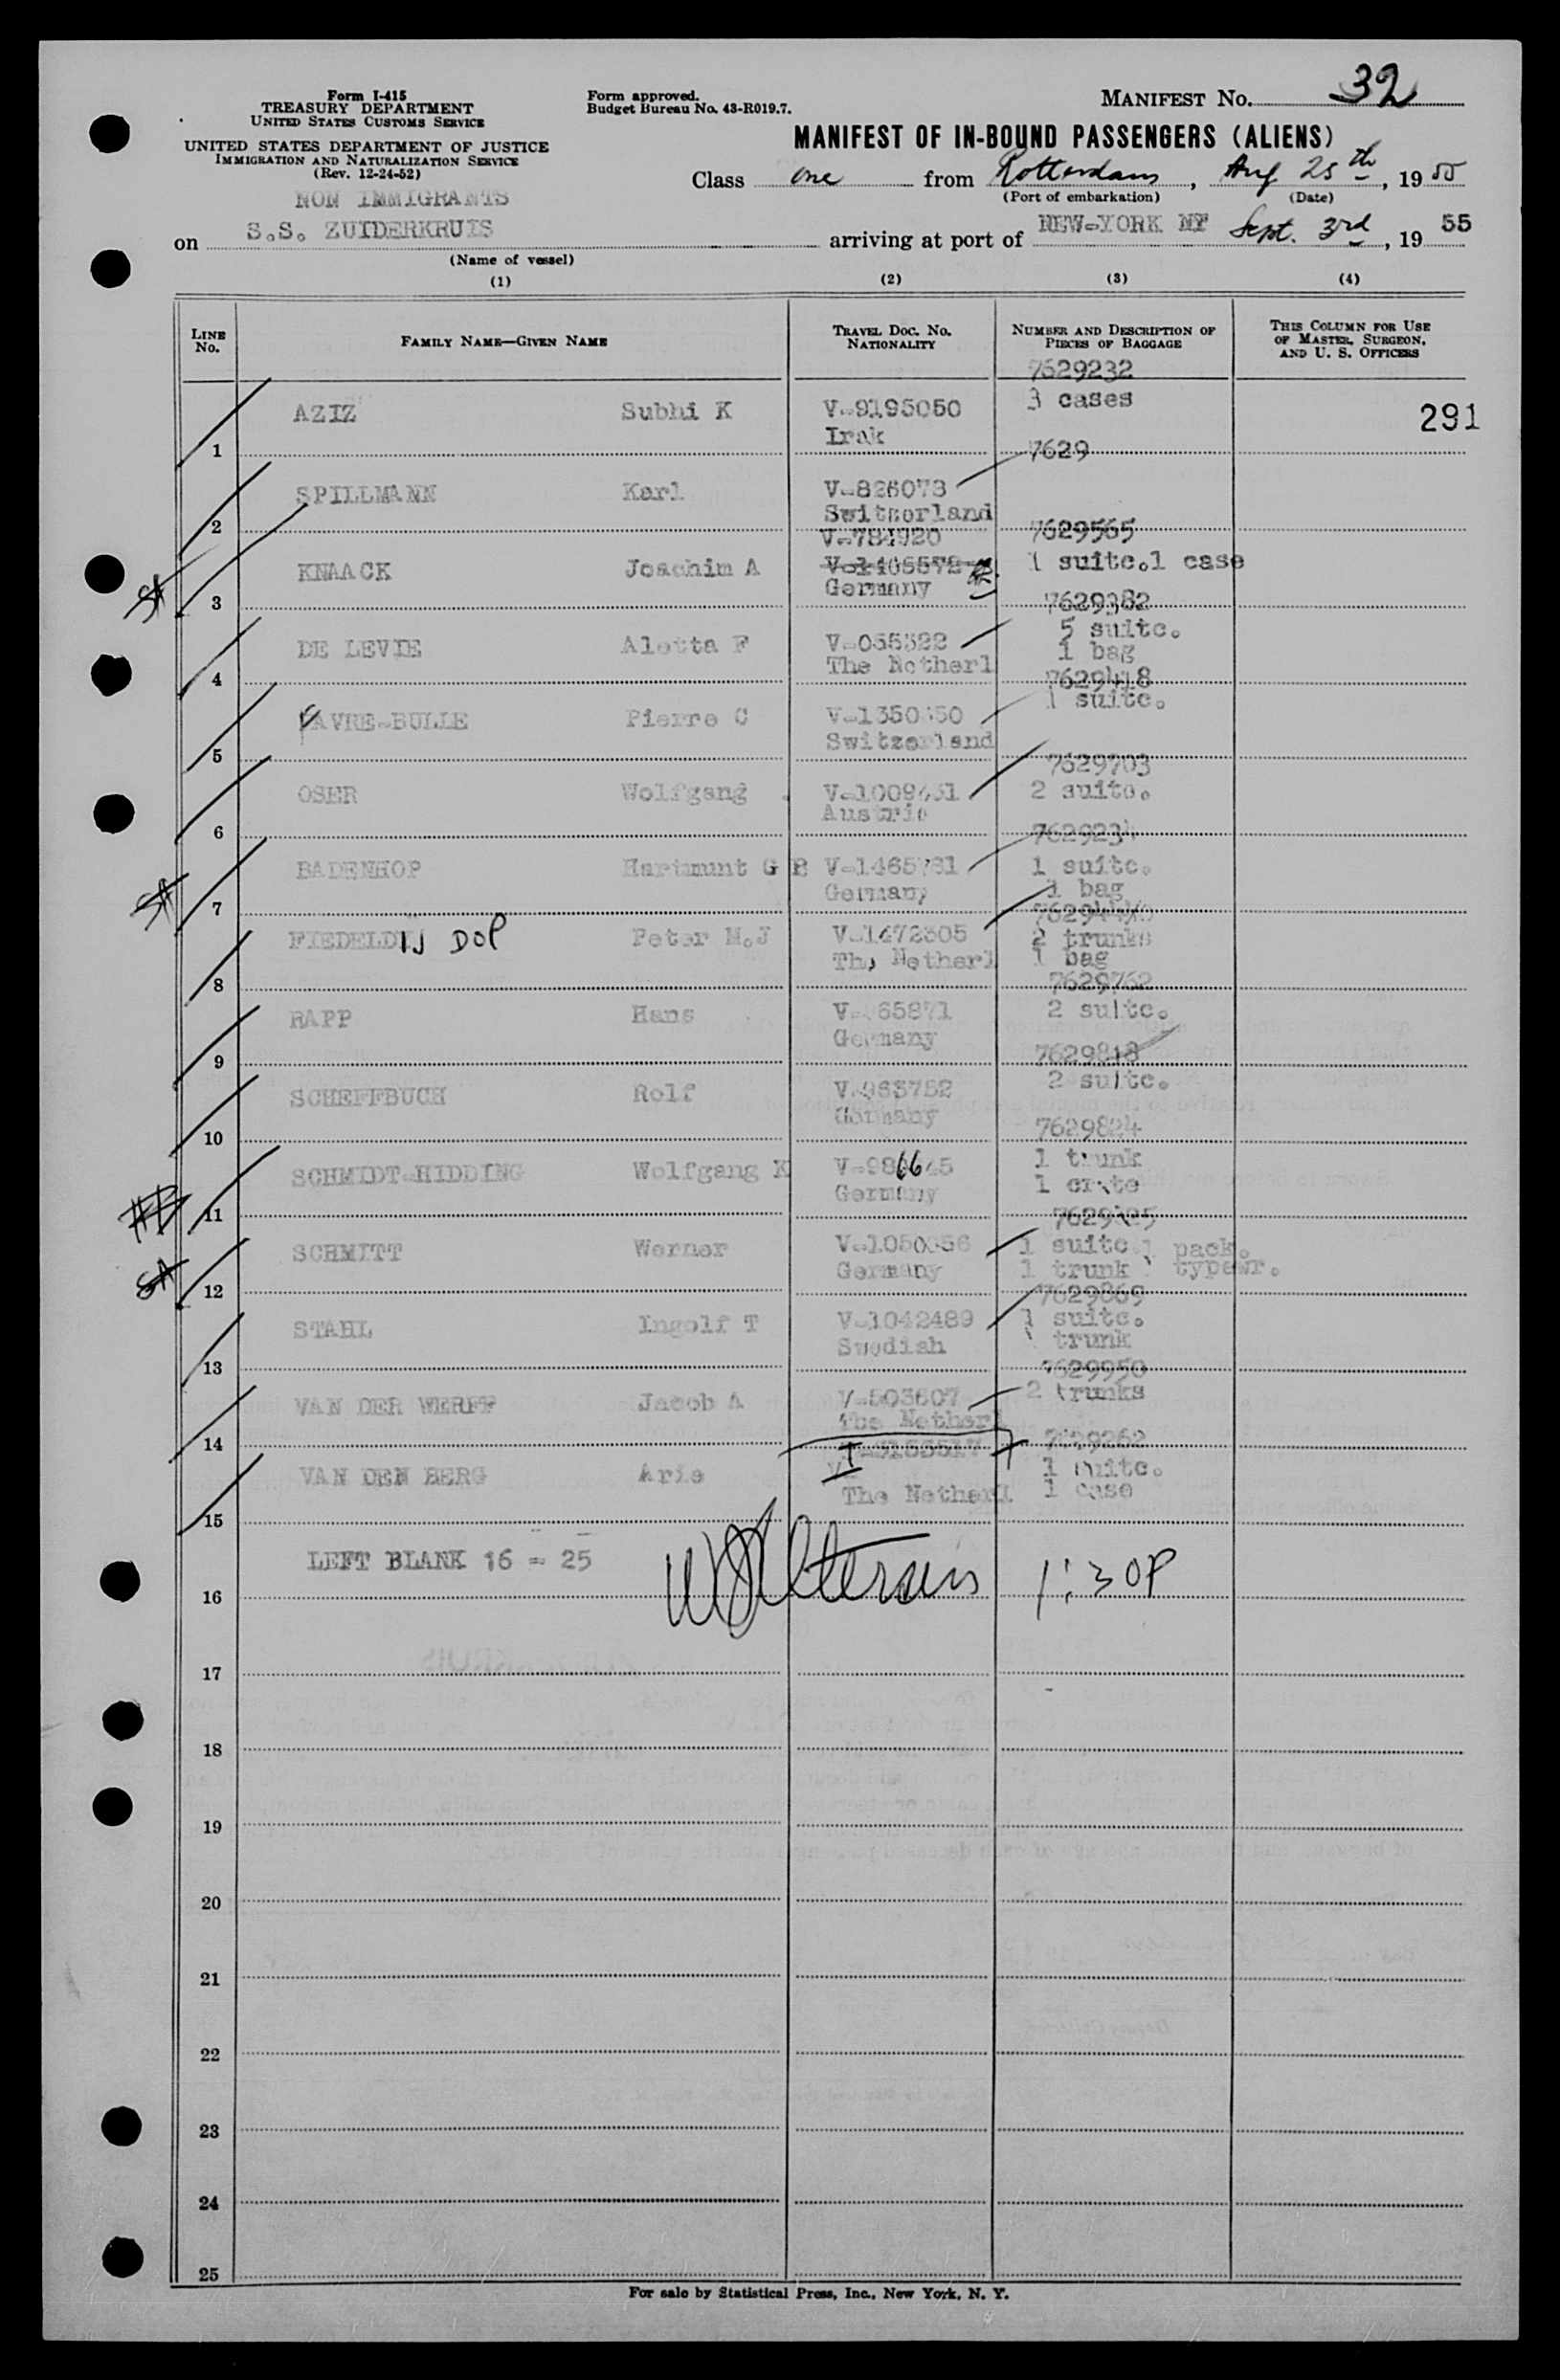 Form I-415
TREASURY DEPARTMENT
UNITED STATES CUSTOMS SERVICE
UNITED STATES DEPARTMENT OF JUSTICE
IMMIGRATION AND NATURALIZATION SERVICE
(Rev. 12-24-52)
Form approved.
Budget Bureau No. 43-R019.7.
MANIFEST No. 32
MANIFEST OF IN-BOUND PASSENGERS (ALIENS)
Class one from Rotterdam, Aug 25th, 1955
(Port of embarkation) (Date)
NON IMMIGRANTS
on S.S. ZUIDERKRUIS arriving at port of NEW-YORK NY Sept. 3rd, 1955
(Name of vessel)
(1) (2) (3) (4)
LINE No. FAMILY NAME—GIVEN NAME TRAVEL DOC. NO. NATIONALITY NUMBER AND DESCRIPTION OF PIECES OF BAGGAGE THIS COLUMN FOR USE OF MASTER, SURGEON, AND U. S. OFFICERS
7629232
AZIZ Subhi K V-9195050 3 cases 291
1 Irak
7629
SPILLMANN Karl V-826073
2 Switzerland
V-784920 7629565
KNAACK Joachim A V-1406572 1 suitc.1 case
SA 3 Germany
7629382
DE LEVIE Aletta F V-055322 5 suitc.
4 The Netherl 1 bag
7629418
FAVRE-BULLE Pierre C 1 suitc.
5 Switzerland
7629703
OSER Wolfgang 2 suitc.
6 Austria
7629234
BADENHOP Hartmunt G B 1 suitc.
SA 7 Germany 1 bag
FIEDELDIJ DOP Peter M.J V-1472305 2 trunks
8 The Netherl 1 bag
7629762
RAPP Hans 2 suitc.
9 Germany
7629818
SCHEFFBUCH Rolf V-963752 2 suitc.
10 Germany
7629824
SCHMIDT-HIDDING Wolfgang K 1 trunk
HB 11 Germany 1 crate
SCHMITT Werner 1 suitc 1 pack.
SA 12 Germany 1 trunk 1 typewr.
7629869
STAHL Ingolf T V-1042489 1 suitc.
13 Swedish 1 trunk
7629950
VAN DER WERFF Jacob A V-503607 2 trunks
14 The Netherl
VAN DEN BERG Arie 1 suitc.
15 The Netherl 1 case
LEFT BLANK 16 - 25 1:30P
16
17
18
19
20
21
22
23
24
25
For sale by Statistical Press, Inc., New York, N. Y.